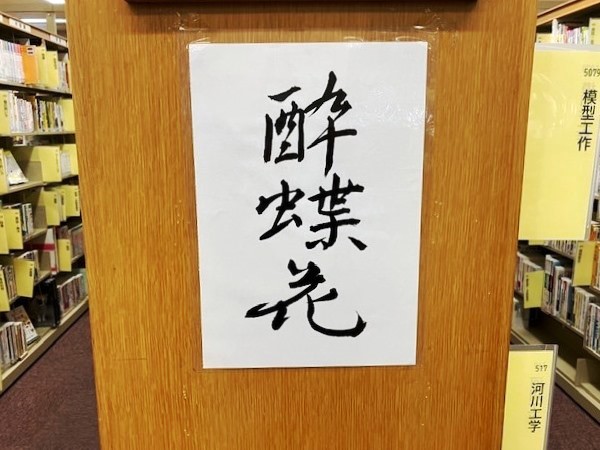 酔蝶花
5079
模型工作
517
河川工学